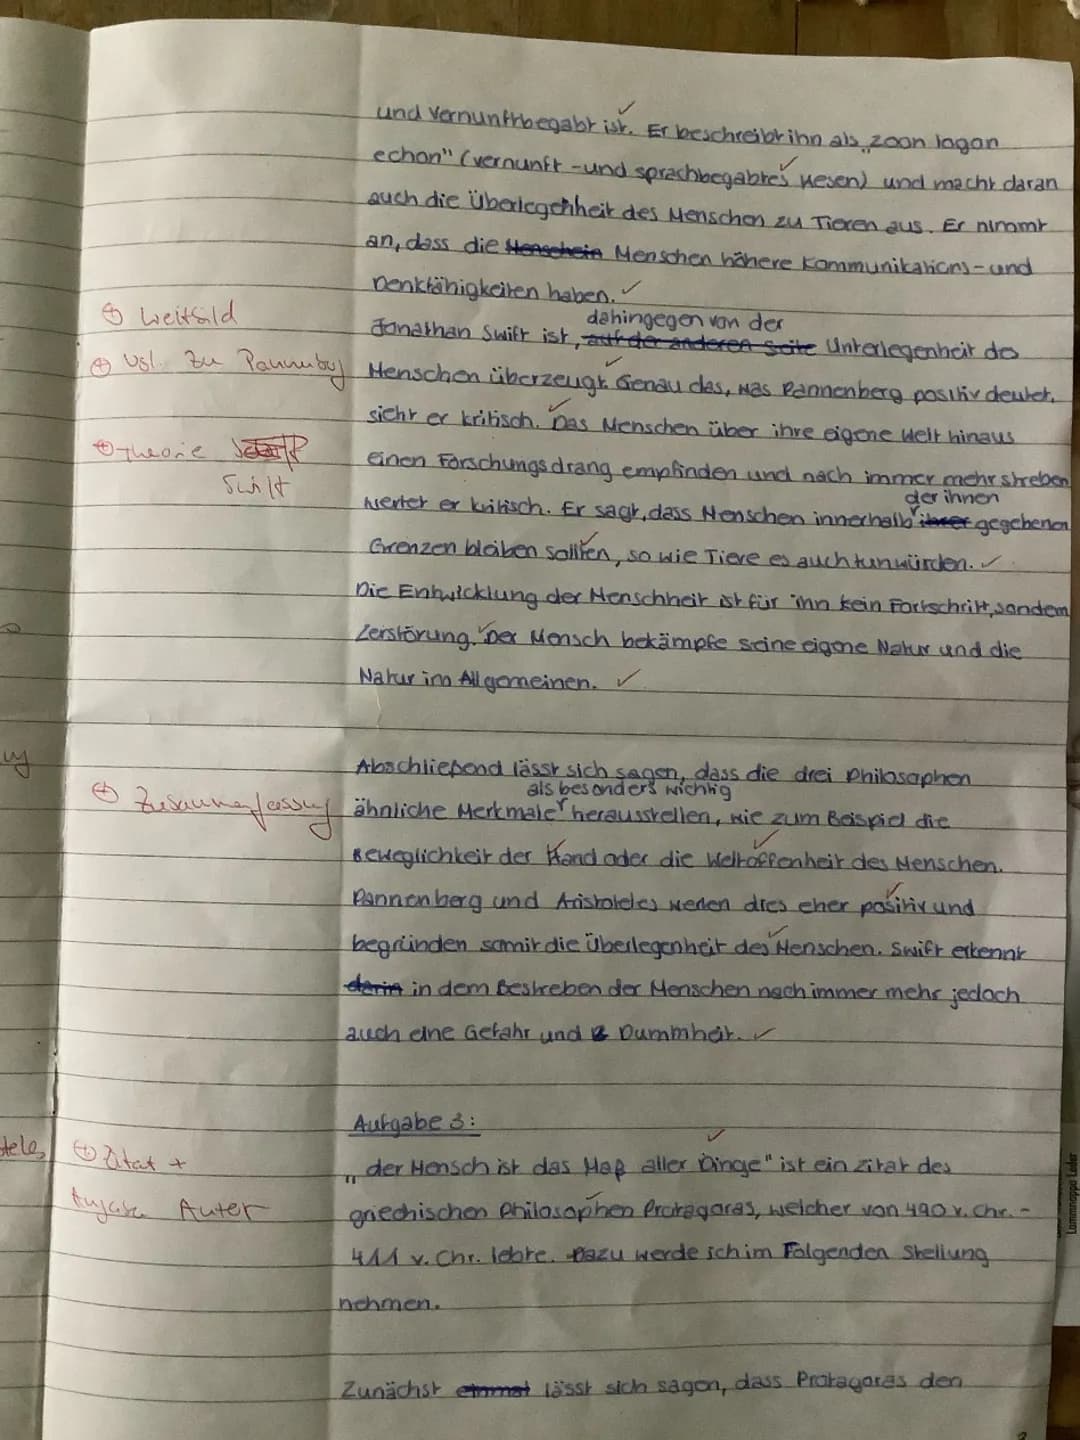 und Vernunftbegabt ist. Er beschreibt ihn als „zoon logon
echon" (vernunft-und sprachbegabtes Wesen) und macht daran
auch die Überlegenheit des Menschen zu Tieren aus. Er nimmt
an, dass die Menschein Menschen höhere Kommunikations-und
Denkfähigkeiten haben.
⊕ Weltbild
dahingegen von der
Jonathan Swift ist, auf der anderen Seite Unterlegenheit des
⊕ Vgl. zu Pannenberg
Menschen überzeugt. Genau das, was Pannenberg positiv deutet,
sieht er kritisch. Das Menschen über ihre eigene Welt hinaus
⊕ Theorie
Swift
einen Forschungsdrang empfinden und nach immer mehr streben
der ihnen
wertet er kritisch. Er sagt, dass Menschen innerhalb ihrer gegebenen
Grenzen bleiben sollten, so wie Tiere es auch tun würden.
Die Entwicklung der Menschheit ist für ihn kein Fortschritt, sondern
Zerstörung. Der Mensch bekämpfe seine eigene Natur und die
Natur im Allgemeinen.
Abschließend lässt sich sagen, dass die drei Philosophen
als besonders wichtig
⊕ Zusammenfassung
ähnliche Merkmale herausstellen, wie zum Beispiel die
Beweglichkeit der Hand oder die Weltoffenheit des Menschen.
Pannenberg und Aristoteles werten dies eher positiv und
begründen somit die Überlegenheit des Menschen. Swift erkennt
darin in dem Bestreben der Menschen nach immer mehr jedoch
auch eine Gefahr und Dummheit.
Aufgabe 3:
teles
⊕ Zitat +
Angabe Autor
„der Mensch ist das Maß aller Dinge" ist ein Zitat des
griechischen Philosophen Protagoras, welcher von 490 v. Chr. -
411 v. Chr. lebte. Dazu werde ich im Folgenden Stellung
nehmen.
Zunächst einmal lässt sich sagen, dass Protagoras den
Lammnappa Leder